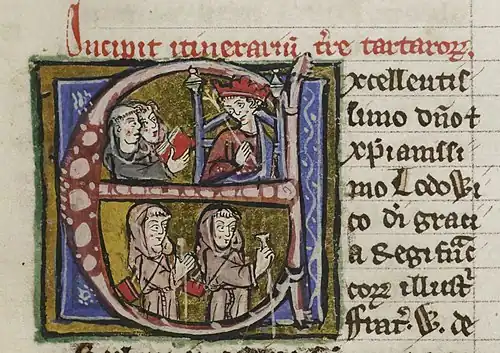 Incipit itinerariū tr̄e tartaroꝝ.
Excellentiſ
ſimo dn̄o ⁊
xp̄ianiſſi
mo Lodowi
co di graci
a Regi fnc̄
coꝝ illuſt
ffrat̉. W. de